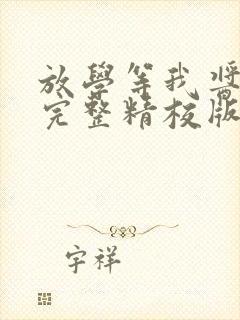 放學等我醬
完整精校版
宇祥